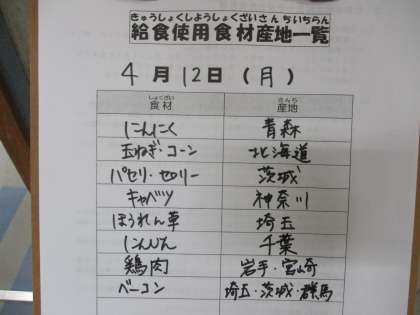 きゅうしょくしようしょくざいさんちいちらん
給食使用食材産地一覧
4月12日(月)
しょくざい さんち
食材 産地
にんにく 青森
玉ねぎ・コーン 北海道
パセリ・セロリー 茨城
キャベツ 神奈川
ほうれん草 埼玉
にんじん 千葉
鶏肉 岩手・宮崎
ベーコン 埼玉・茨城・群馬